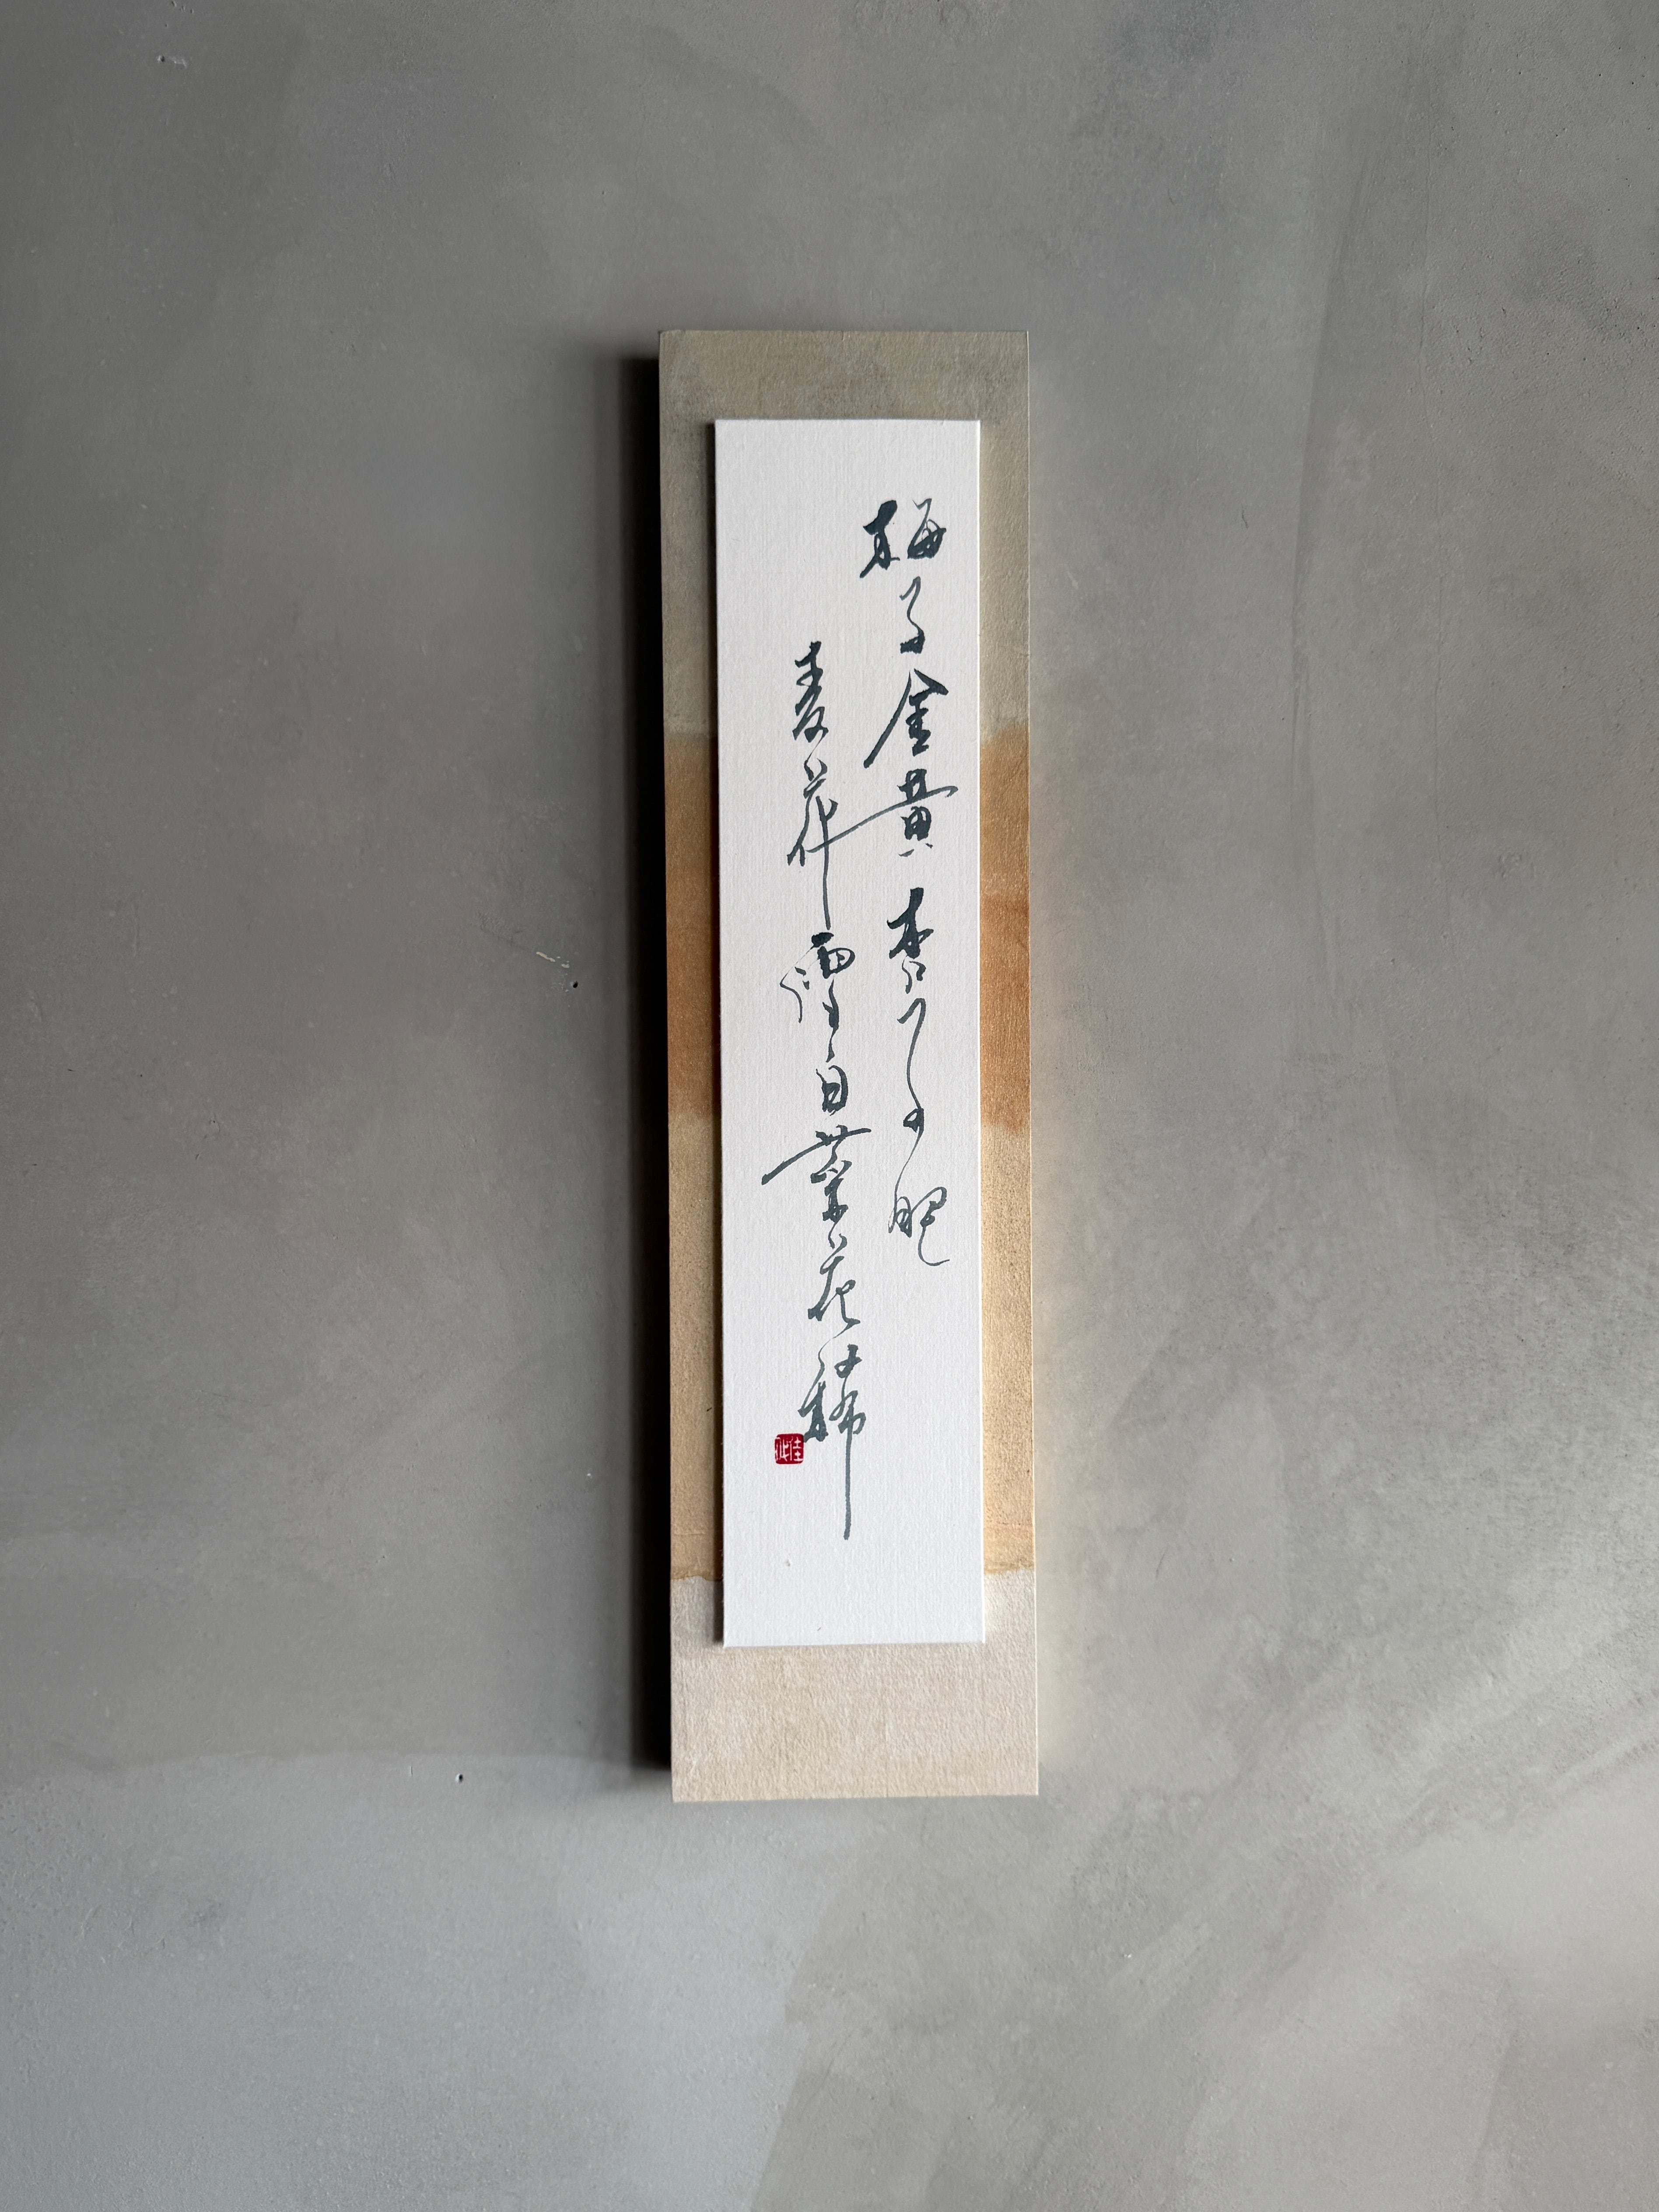 梅子金黄杏子肥
麦花雪白菜花稀